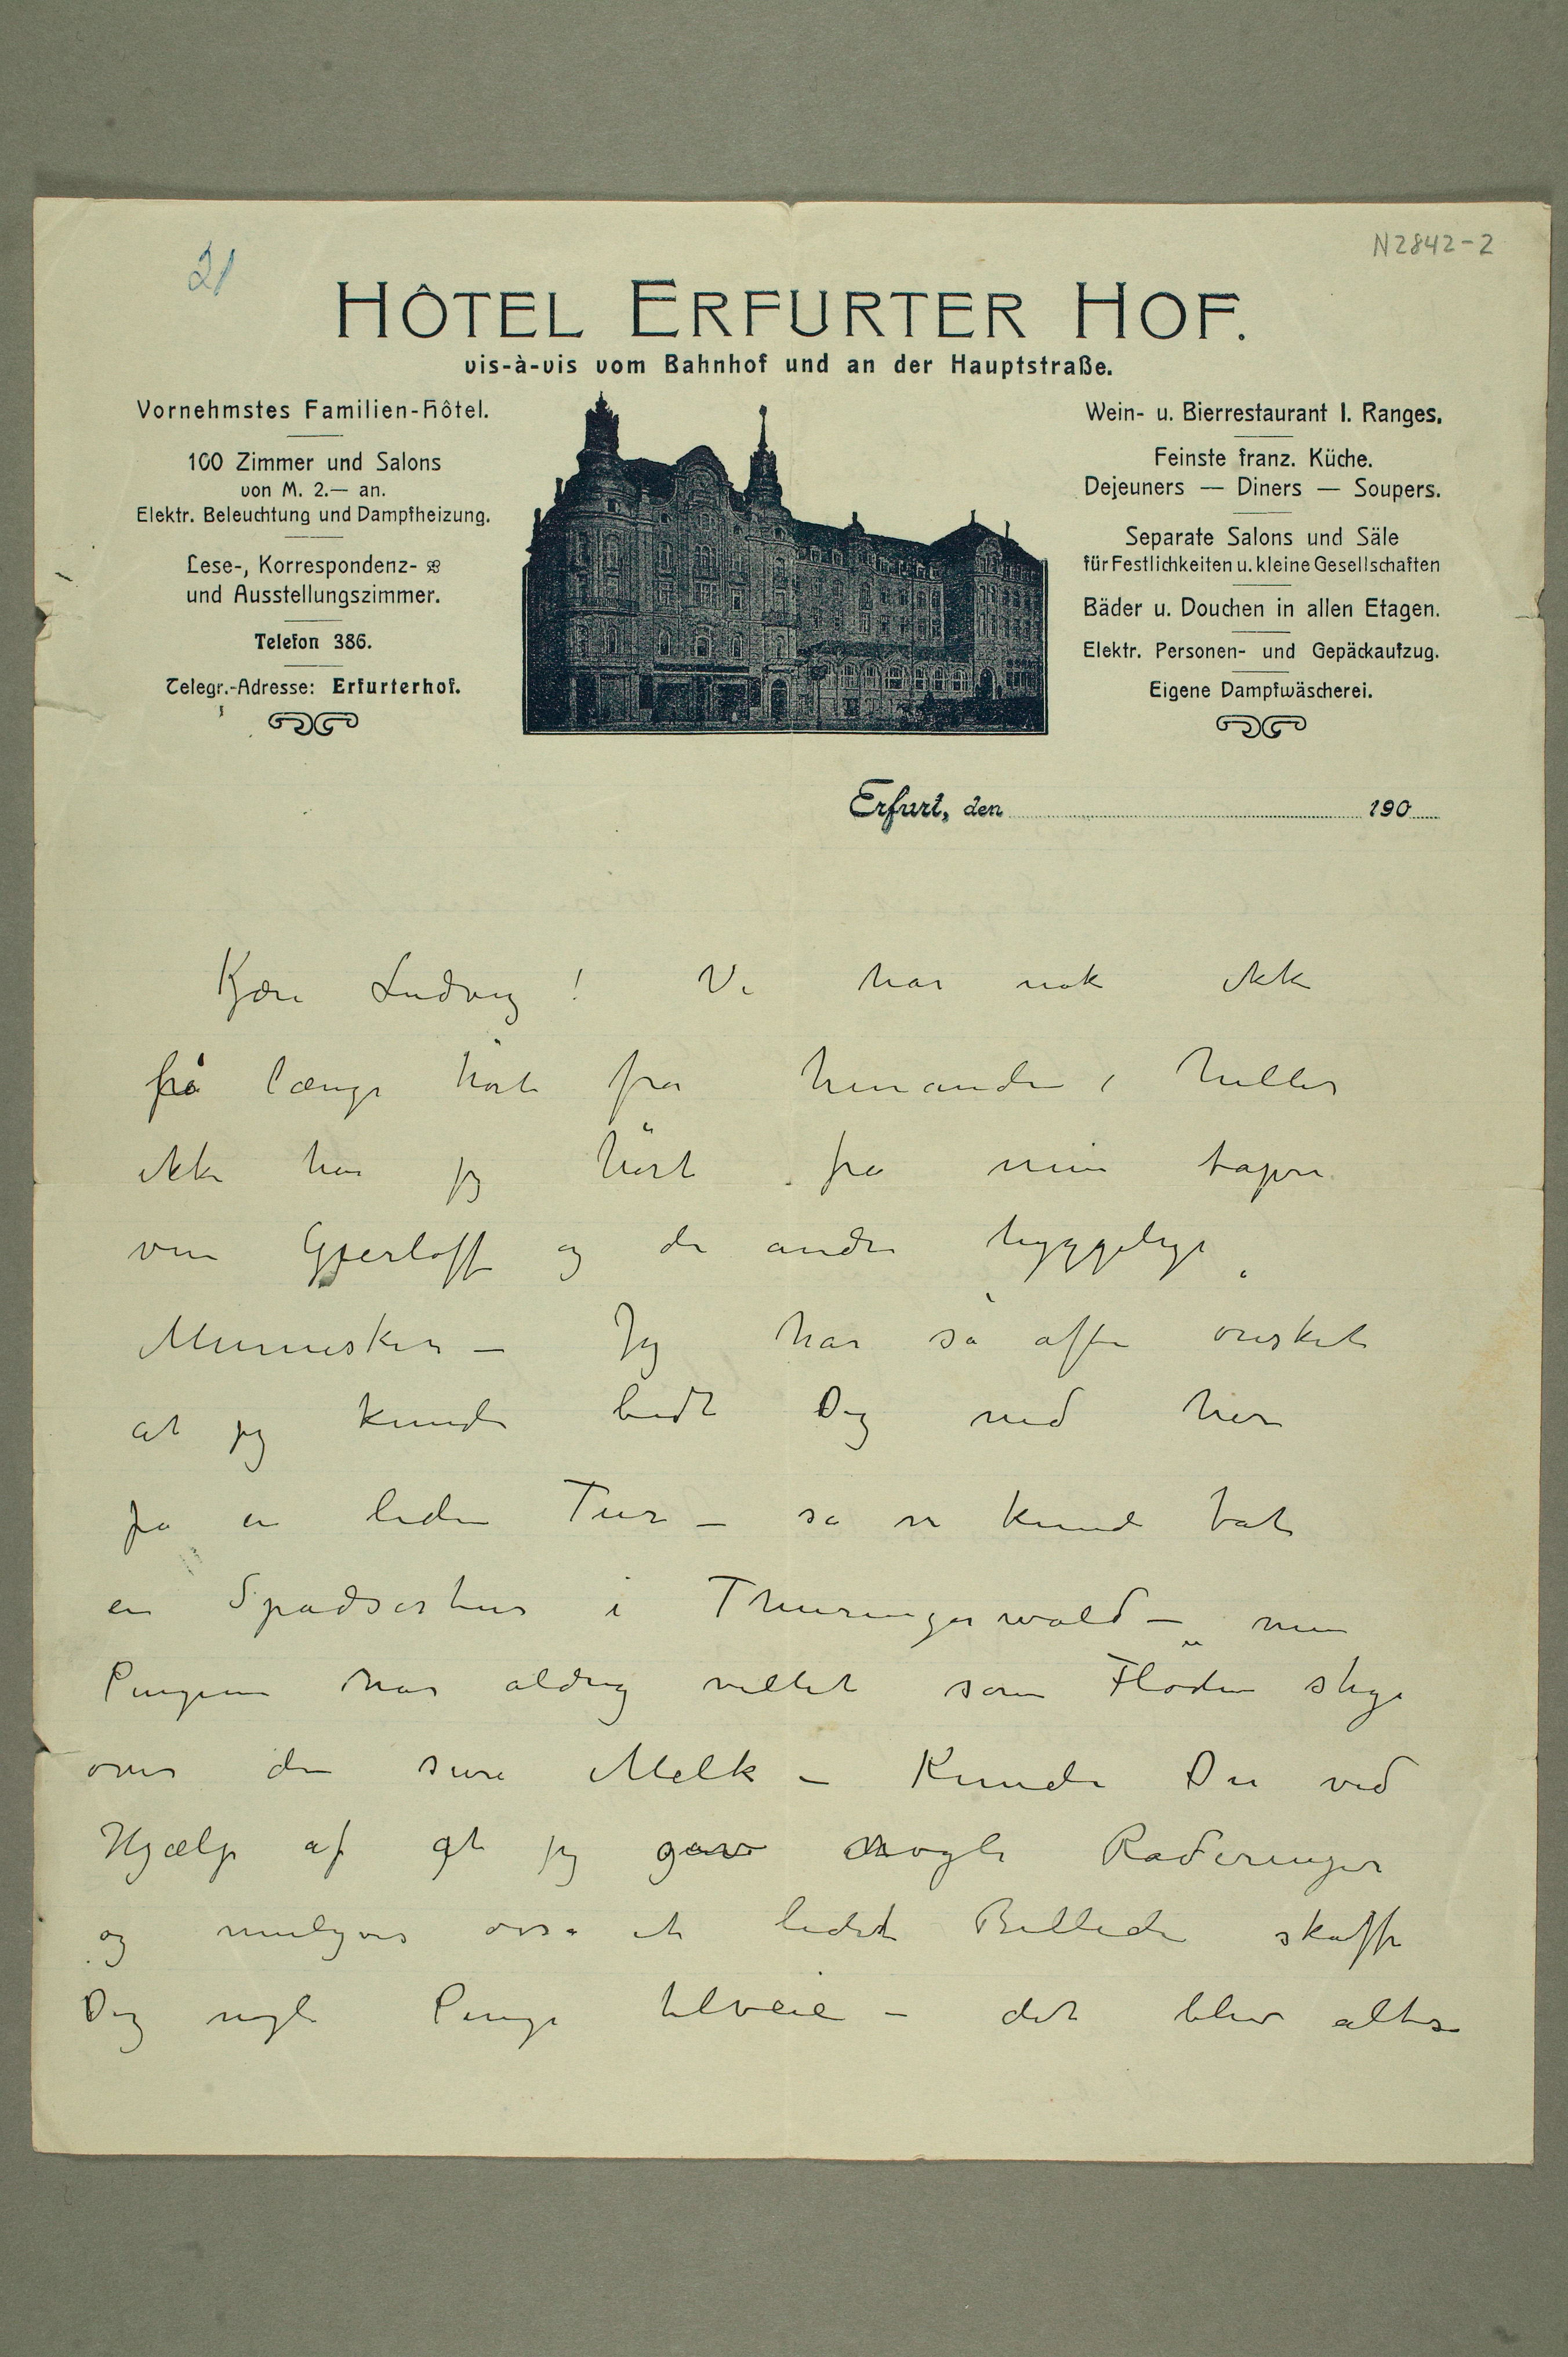 21
N2842-2
HÔTEL ERFURTER HOF.
vis-à-vis vom Bahnhof und an der Hauptstraße.
Vornehmstes Familien-Hôtel.
100 Zimmer und Salons
von M. 2.— an.
Elektr. Beleuchtung und Dampfheizung.
Lese-, Korrespondenz-
und Ausstellungszimmer.
Telefon 386.
Telegr.-Adresse: Erfurterhof.
Wein- u. Bierrestaurant I. Ranges.
Feinste franz. Küche.
Dejeuners — Diners — Soupers.
Separate Salons und Säle
für Festlichkeiten u. kleine Gesellschaften
Bäder u. Douchen in allen Etagen.
Elektr. Personen- und Gepäckaufzug.
Eigene Dampfwäscherei.
Erfurt, den 190
Kjære Ludvig! Vi har nok ikke
på længe hört fra hinanden, heller
ikke har jeg hört fra min tapre
ven Gjerløff og de andre hyggelige
Mennesker – Jeg har så ofte önsket
at jeg kunde bedt Dig ned her
på en liden Tur – så vi kunde tat
en Spadsertur i Thuringerwald – men
Pengene har aldrig villet som Flöden stige
over den sure Melk – Kunde Du ved
Hjælp af at jeg gav nogle Raderinger
og muligvis også et lidet Billede skaffe
Dig nogle Penge tilveie – det blev altså